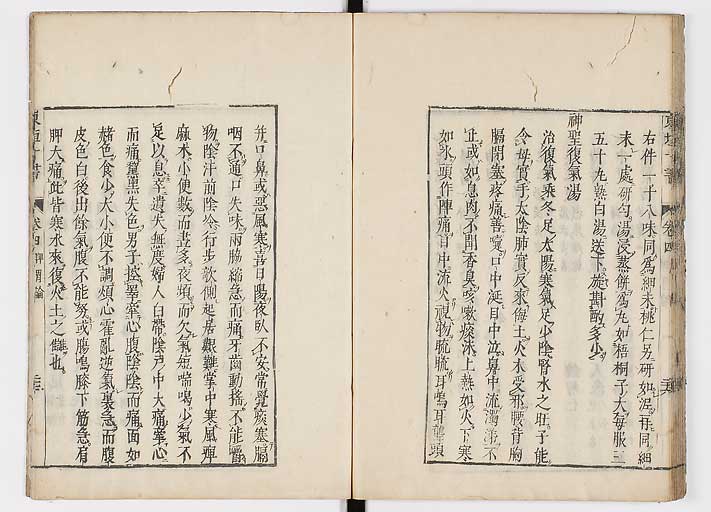 右件一十八味同爲細末桃仁另研如泥再同細
末一處研勻湯浸蒸餅爲丸如梧桐子大每服三
五十丸熟白湯送下旋斟酌多少
神聖復氣湯
治復氣乘冬足太陽寒氣足少陰腎水之旺子能
令母實手太陰肺實反來侮土火木受邪腰背胸
膈閉塞疼痛善嚏口中涎目中泣鼻中流濁涕不
止或如息肉不聞香臭咳嗽痰沫上熱如火下寒
如氷頭作陣痛目中流火視物䀮䀮耳鳴耳聾頭
并口鼻或惡風寒喜日陽夜臥不安常覺痰塞膈
咽不通口失味兩脇縮急而痛牙齒動搖不能嚼
物陰汗前陰冷行步欹側起居艱難掌中寒風痺
麻木小便數而晝多夜頻而欠氣短喘喝少氣不
足以息卒遺失無度婦人白帶陰戶中大痛牽心
而痛黧黑失色男子控睪牽心腹陰陰而痛面如
赭色食少大小便不調煩心霍亂逆氣裏急而腹
皮色白後出餘氣腹不能努或腸鳴膝下筋急肩
胛大痛此皆寒水來復火土之讎也
東垣十書
卷四
脾胃論